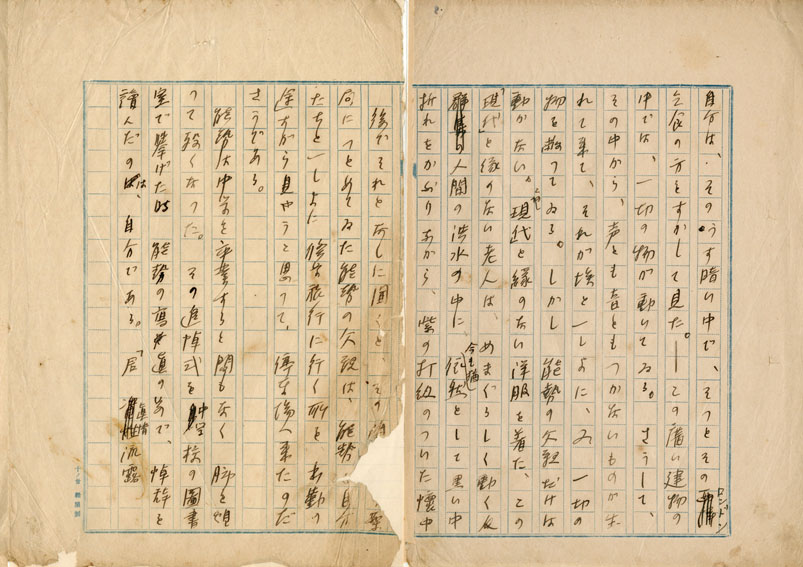 自分は、そのうす暗い中で、そつとその ロンドン
乞食の方をすかして見た。――この廣い建物の
中では、一切の物が動いてゐる。さうして、
その中から、声とも音ともつかないものが生
れて来て、それが埃と一しよに、又一切の
物を蔽つてゐる。しかし 能勢の父親だけは
動かない。この現代と縁のない洋服を着た、この
「現代」と縁のない老人は、めまぐろしく動く
人間の洪水の中に、今も猶 として黒い中
折れをかぶりながら、紫の打紐のついた懐中
後でそれとなしに聞くと、その
同につとめてゐた能勢の父親は、能勢 自分
たちと一しよに 修学旅行に行く所を 出勤の
途すがら見やうと思つて、停車場へ来たのだ
さうである。
能勢は中学を卒業すると間もなく 肺を煩
つて 歿くなつた。その追悼式を 中学校の圖書
室で擧げた時 能勢の寫真の前で、悼辞を
讀んだのは、自分である。「君、
十ノ廿